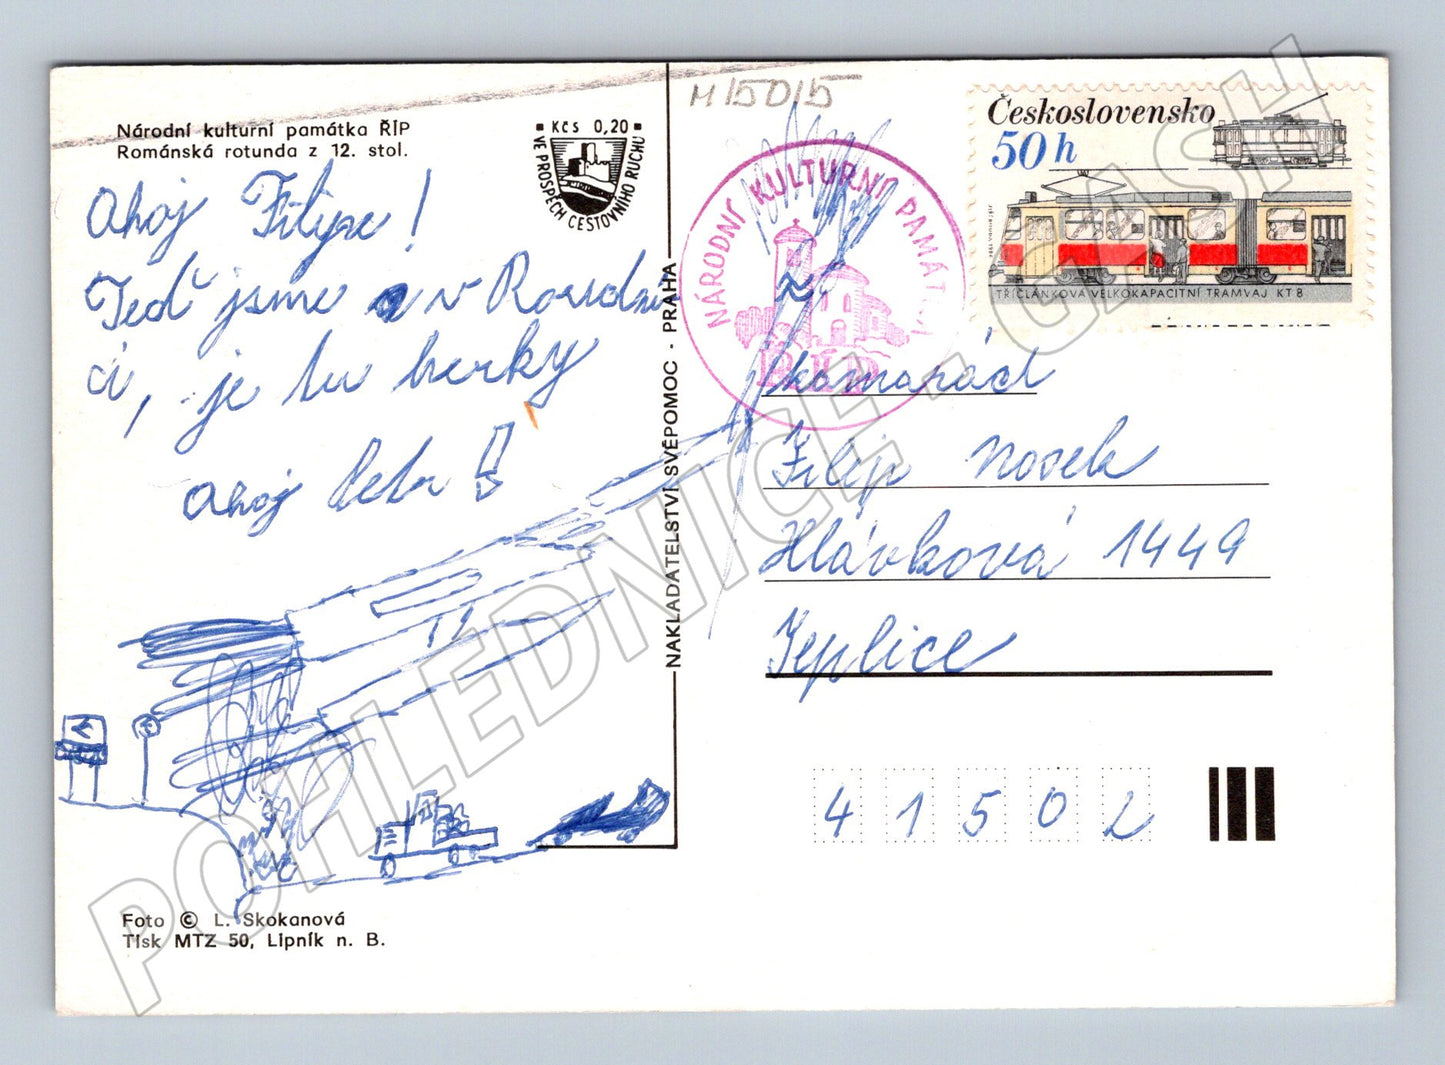 Národní kulturní památka ŘÍP
Románská rotunda z 12. stol.
Kčs 0,20
VE PROSPĚCH CESTOVNÍHO RUCHU
Ahoj Filipe!
Teď jsme v Roudni
ci, je tu horky
Ahoj Petr!
Foto © L. Skokanová
Tisk MTZ 50, Lipník n. B.
NAKLADATELSTVÍ SVÉPOMOC · PRAHA
M15015
NÁRODNÍ KULTURNÍ PAMÁTKA
ŘÍP
Československo
50 h
TŘÍČLÁNKOVÁ VELKOKAPACITNÍ TRAMVAJ KT 8
kamarád
Filip Nosek
Hlávková 1449
Teplice
41502
POHLEDNICE - GASH